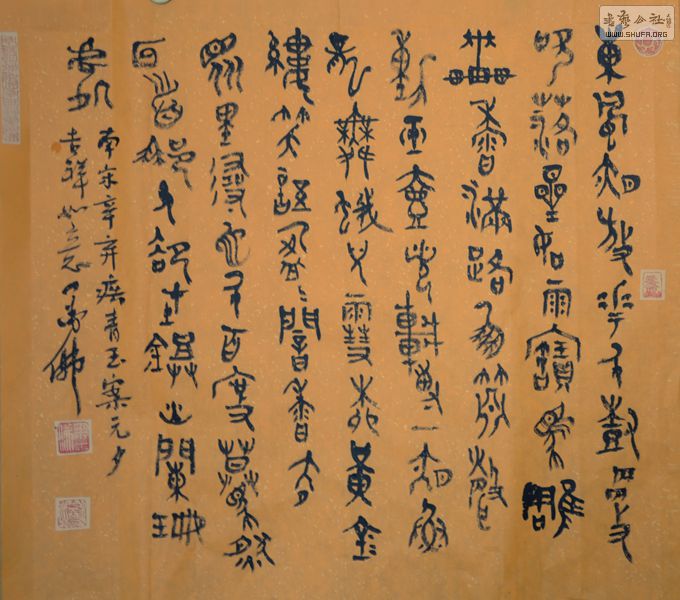 書藝公社
WWW.SHUFA.ORG
東風夜放華千樹更
吹落星如雨寶馬雕
車香滿路鳳簫聲
動玉壺光轉一夜魚
龍舞蛾兒雪柳黃金
縷笑語盈〻暗香去
眾里尋他千百度驀然
回首那人卻在鐙火闌珊
處
南宋辛弃疾青玉案元夕
吉祥如意